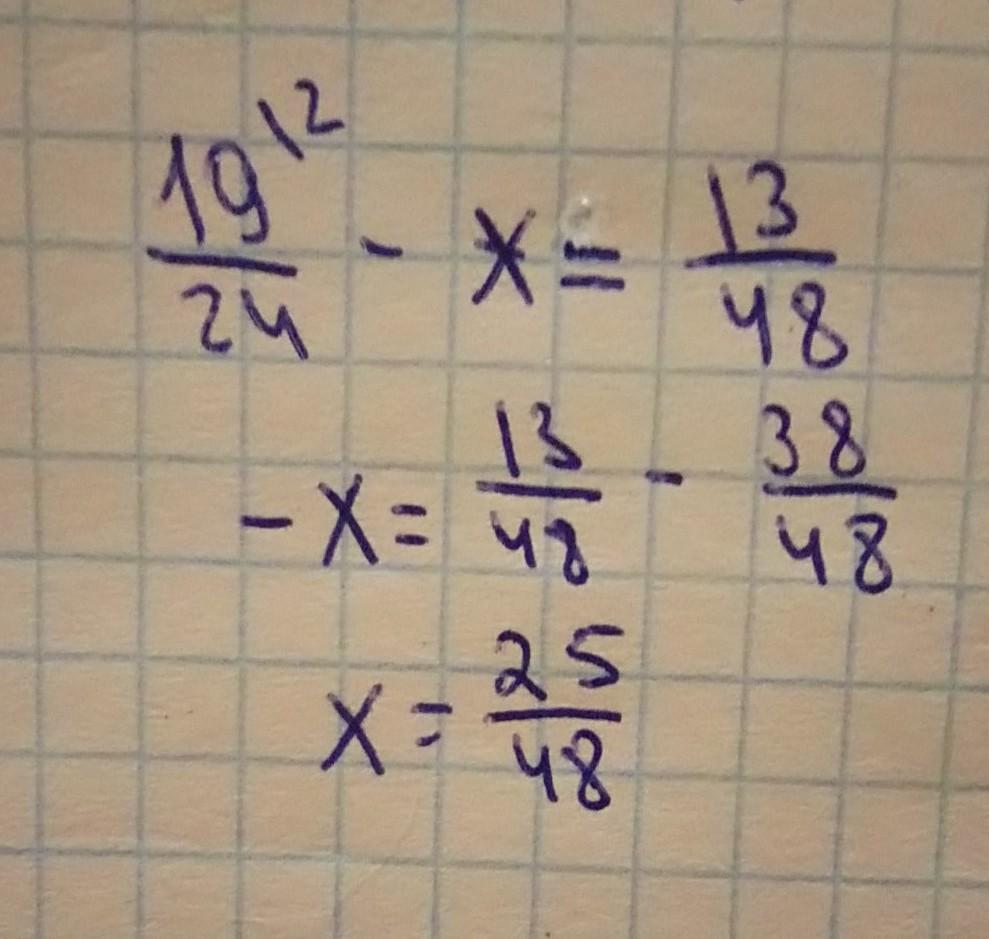 19\2/24 - x = 13/48
- x = 13/48 - 38/48
x = 25/48